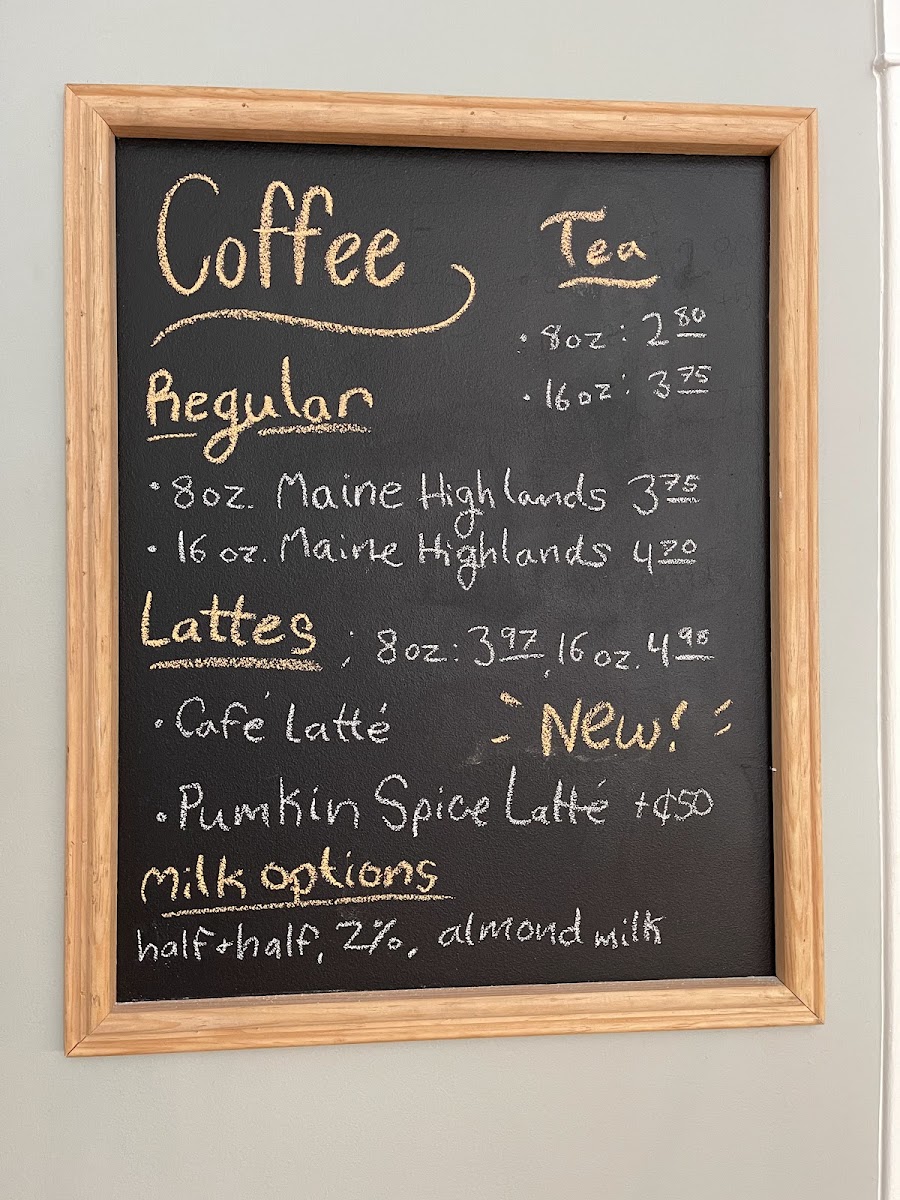 Coffee
Tea
• 8oz: 2 80
• 16 oz: 3 75
Regular
• 8 oz. Maine Highlands 3 75
• 16 oz. Maine Highlands 4 20
Lattes : 8oz: 3 97, 16 oz. 4 98
• Café Latté
New!
• Pumkin Spice Latté +¢50
Milk options
half+half, 2%, almond milk